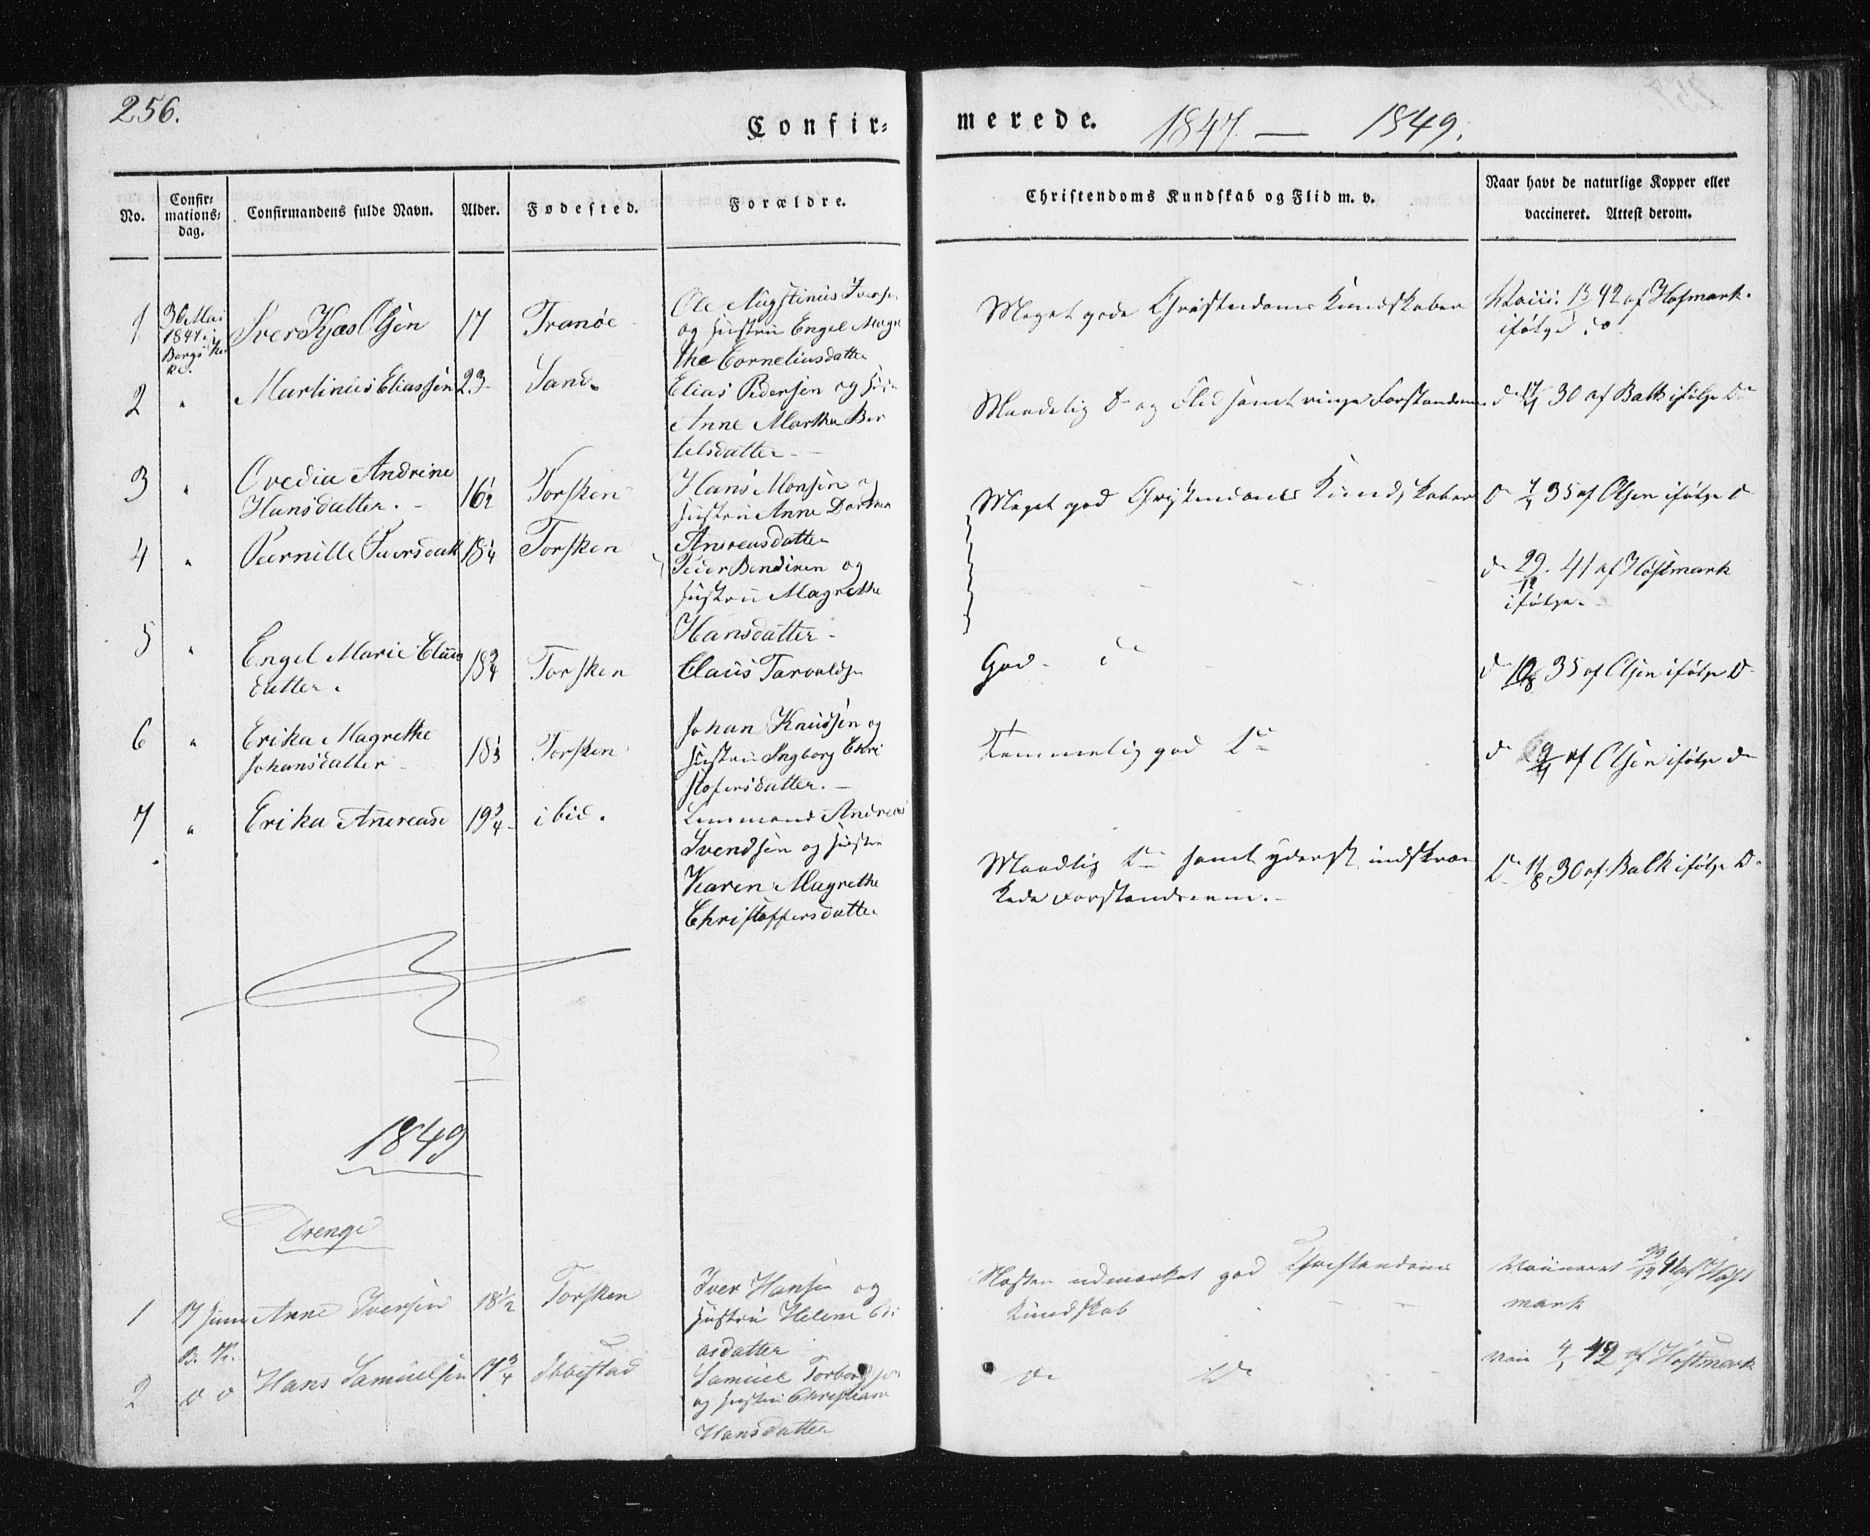 256.
Confir-
merede. 1847 — 1849.
No.
Confir-
mations-
dag.
Confirmandens fulde Navn.
Alder.
Fødested.
Forældre.
Christendoms Kundskab og Flid m. v.
Naar havt de naturlige Kopper eller
vaccineret. Attest derom.
1
Mai
1847 i
Iver Olsen
17
Tranøe
Ole Augstinus Iversen
og Hustru Engel Magre
the Corneliusdatter
Meget gode Christendoms Kundskaber
42 af Hosmark.
ifølge do
2
"
Martinus Eliassen
23
Sand
Elias Pedersen og
Anne Martha Ber
telsdatter
Maadelig Do og Flid samt ringe Forstandsevne
30 af Balk ifølge Do
3
"
Ovedia Andrine
Hansdatter.
16½
Torsken
Hans Monsen og
Hustru Anne Dorthea
Andreasdatter
Meget god Christendoms Kundskaber
Do 35 af Olsen ifølge D
4
"
Pernille
18¼
Torsken
Peder Bendixen og
Hustru Magrethe
Hansdatter
do 29/12 41 af Høstmark
ifølge
5
"
Engel Marie Claus
datter.
18¾
Torsken
Claus Tarvaldsen
God do
do 35 af Olsen ifølge D
6
"
Erika Magrethe
Johansdatter
Torsken
Johan Knudsen og
Hustru Ingborg Chri
stofersdatter.
Temmelig god Do
do af Olsen ifølge do
7
"
Erika Andrease
19¾
ibid.
Andreas
Svendsen og Hustru
Karen Magrethe
Christoffersdatter
Maadlig Do samt yderst indskræn
kede Forstandsevne.
Do 11/8 30 af Balk ifølge D
1849
Drenge
1
17 Juni
B. K.
Arne Iversen
18½
Torsken
Iver Hansen og
Hustru Helene Eli
asdatter
Næsten udmærket god Christendoms
Kundskab
Vaccineret 29/12 41 af Høst
mark
2
do
Hans Samuelsen
17¾
Ibbestad
Samuel
og Hustru Christiana
Hansdatter
do do
Vacc 42 af Høstmark